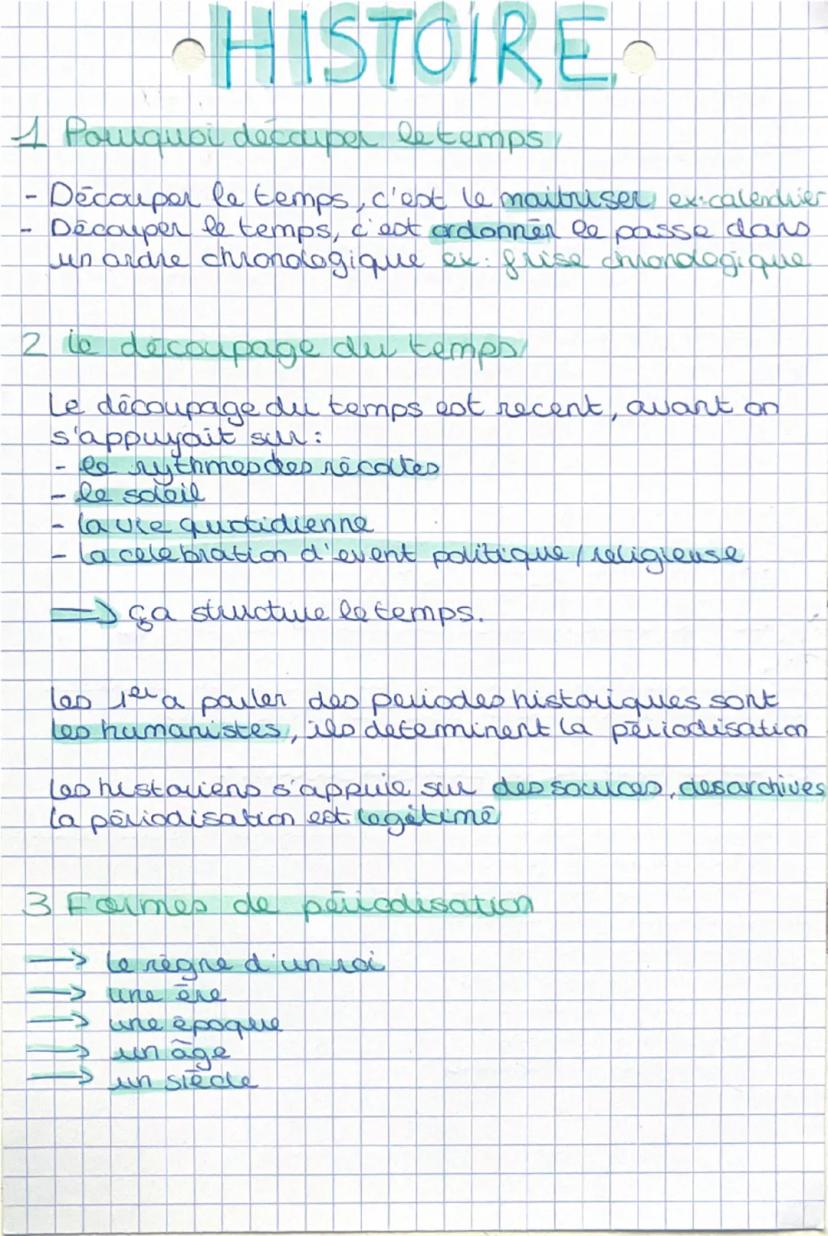 HISTOIRE
1 Pourquoi découper le temps
- Découper le temps, c'est le maitriser ex: calendrier
- Découper le temps, c'est ordonner le passe dans
un ordre chronologique ex: frise chronologique
2 le découpage du temps
Le découpage du temps est recent, avant on
s'appuyait sur :
- le rythmes des récoltes
- le soleil
- la vie quotidienne
- la celebration d'event politique / religieuse
→ ça structure le temps.
les 1er a parler des periodes historiques sont
les humanistes, ils determinent la périodisation
les historiens s'appuie sur des sources, des archives
la périodisation est legétimé
3 Formes de périodisation
→ le règne d'un roi
→ une ère
→ une époque
→ un âge
→ un siècle